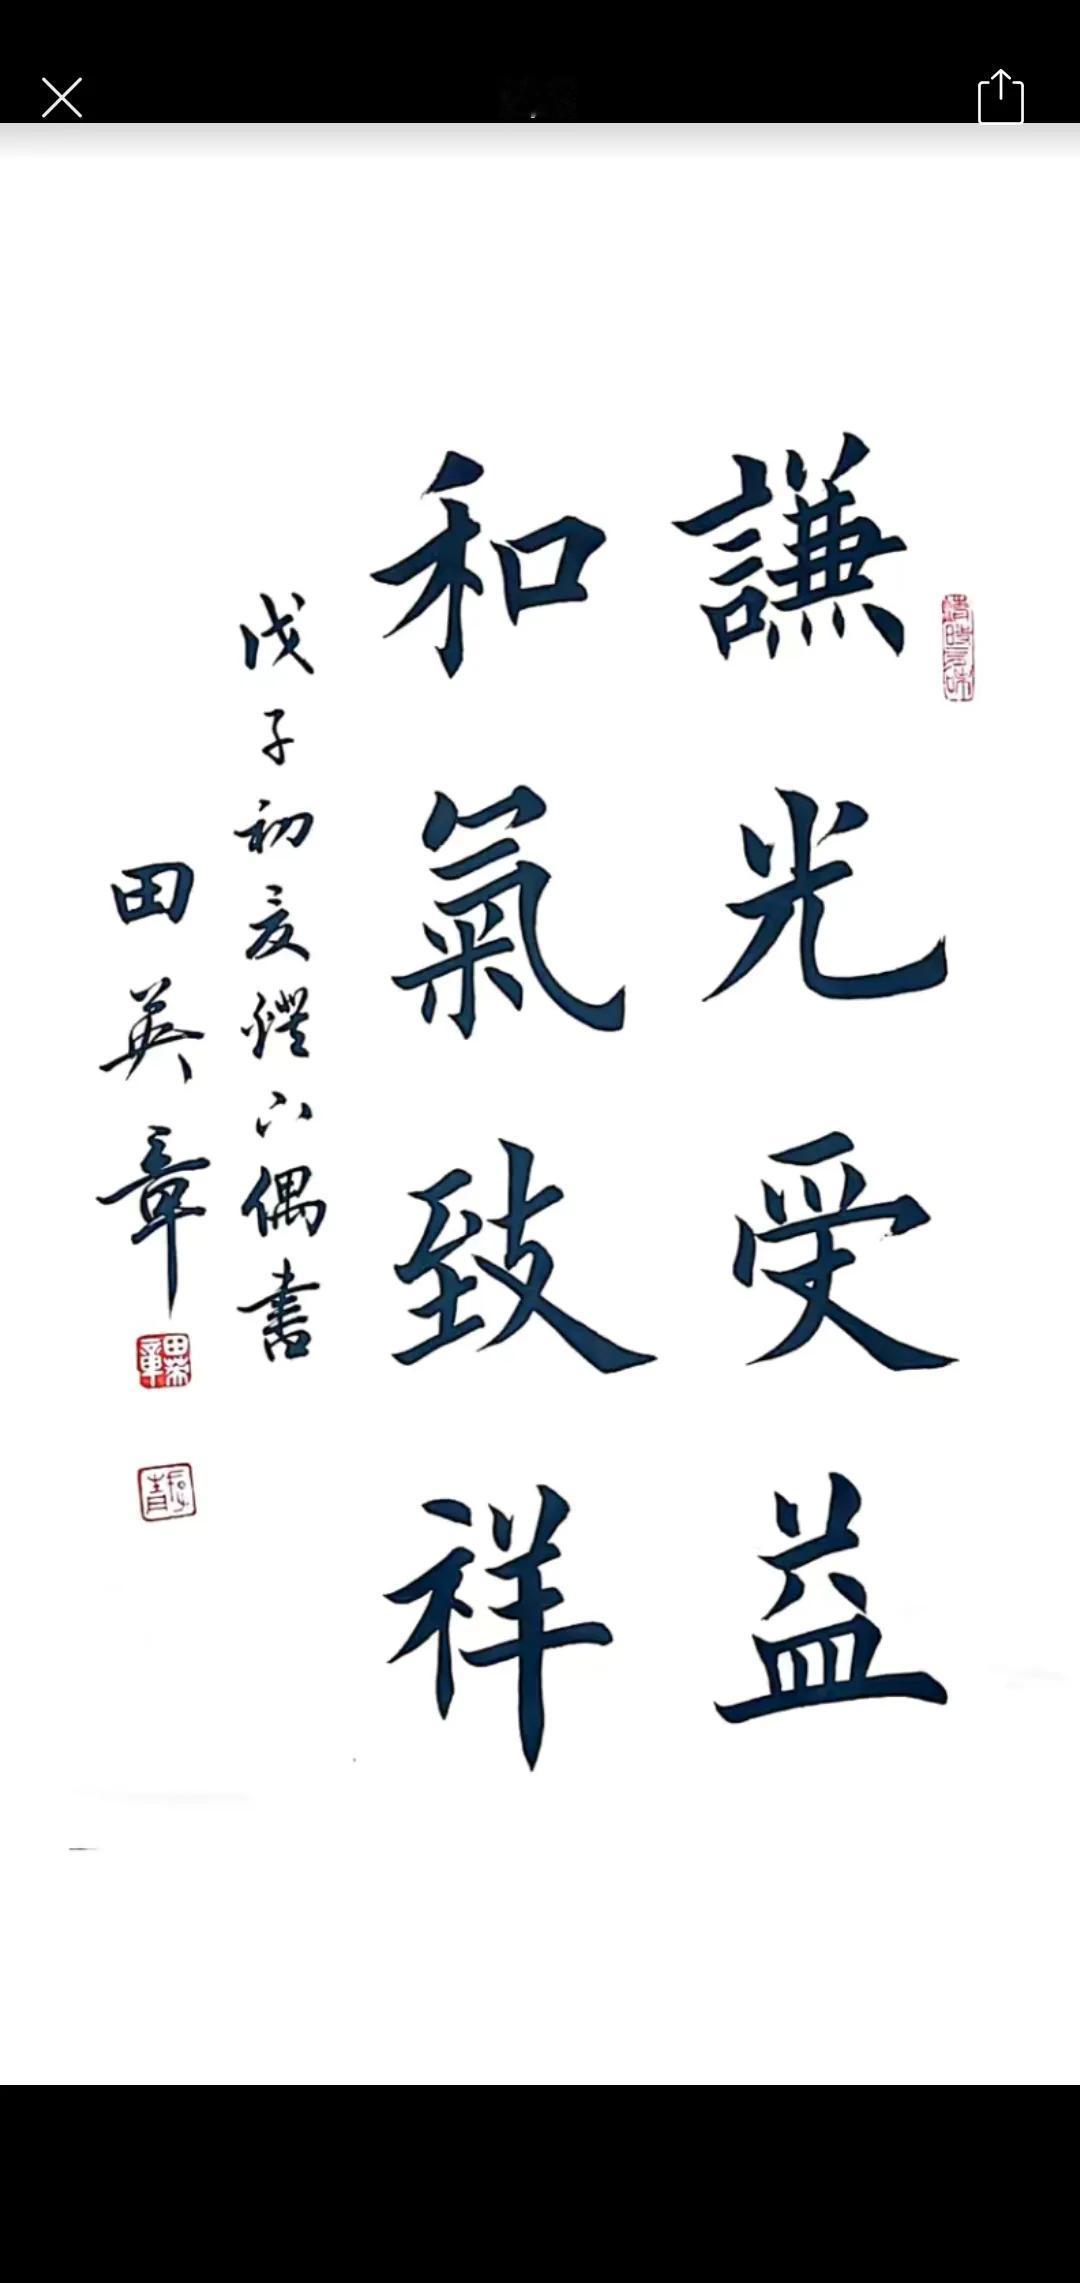 謙光受益
和氣致祥
戊子初夏燈下偶書
田英章